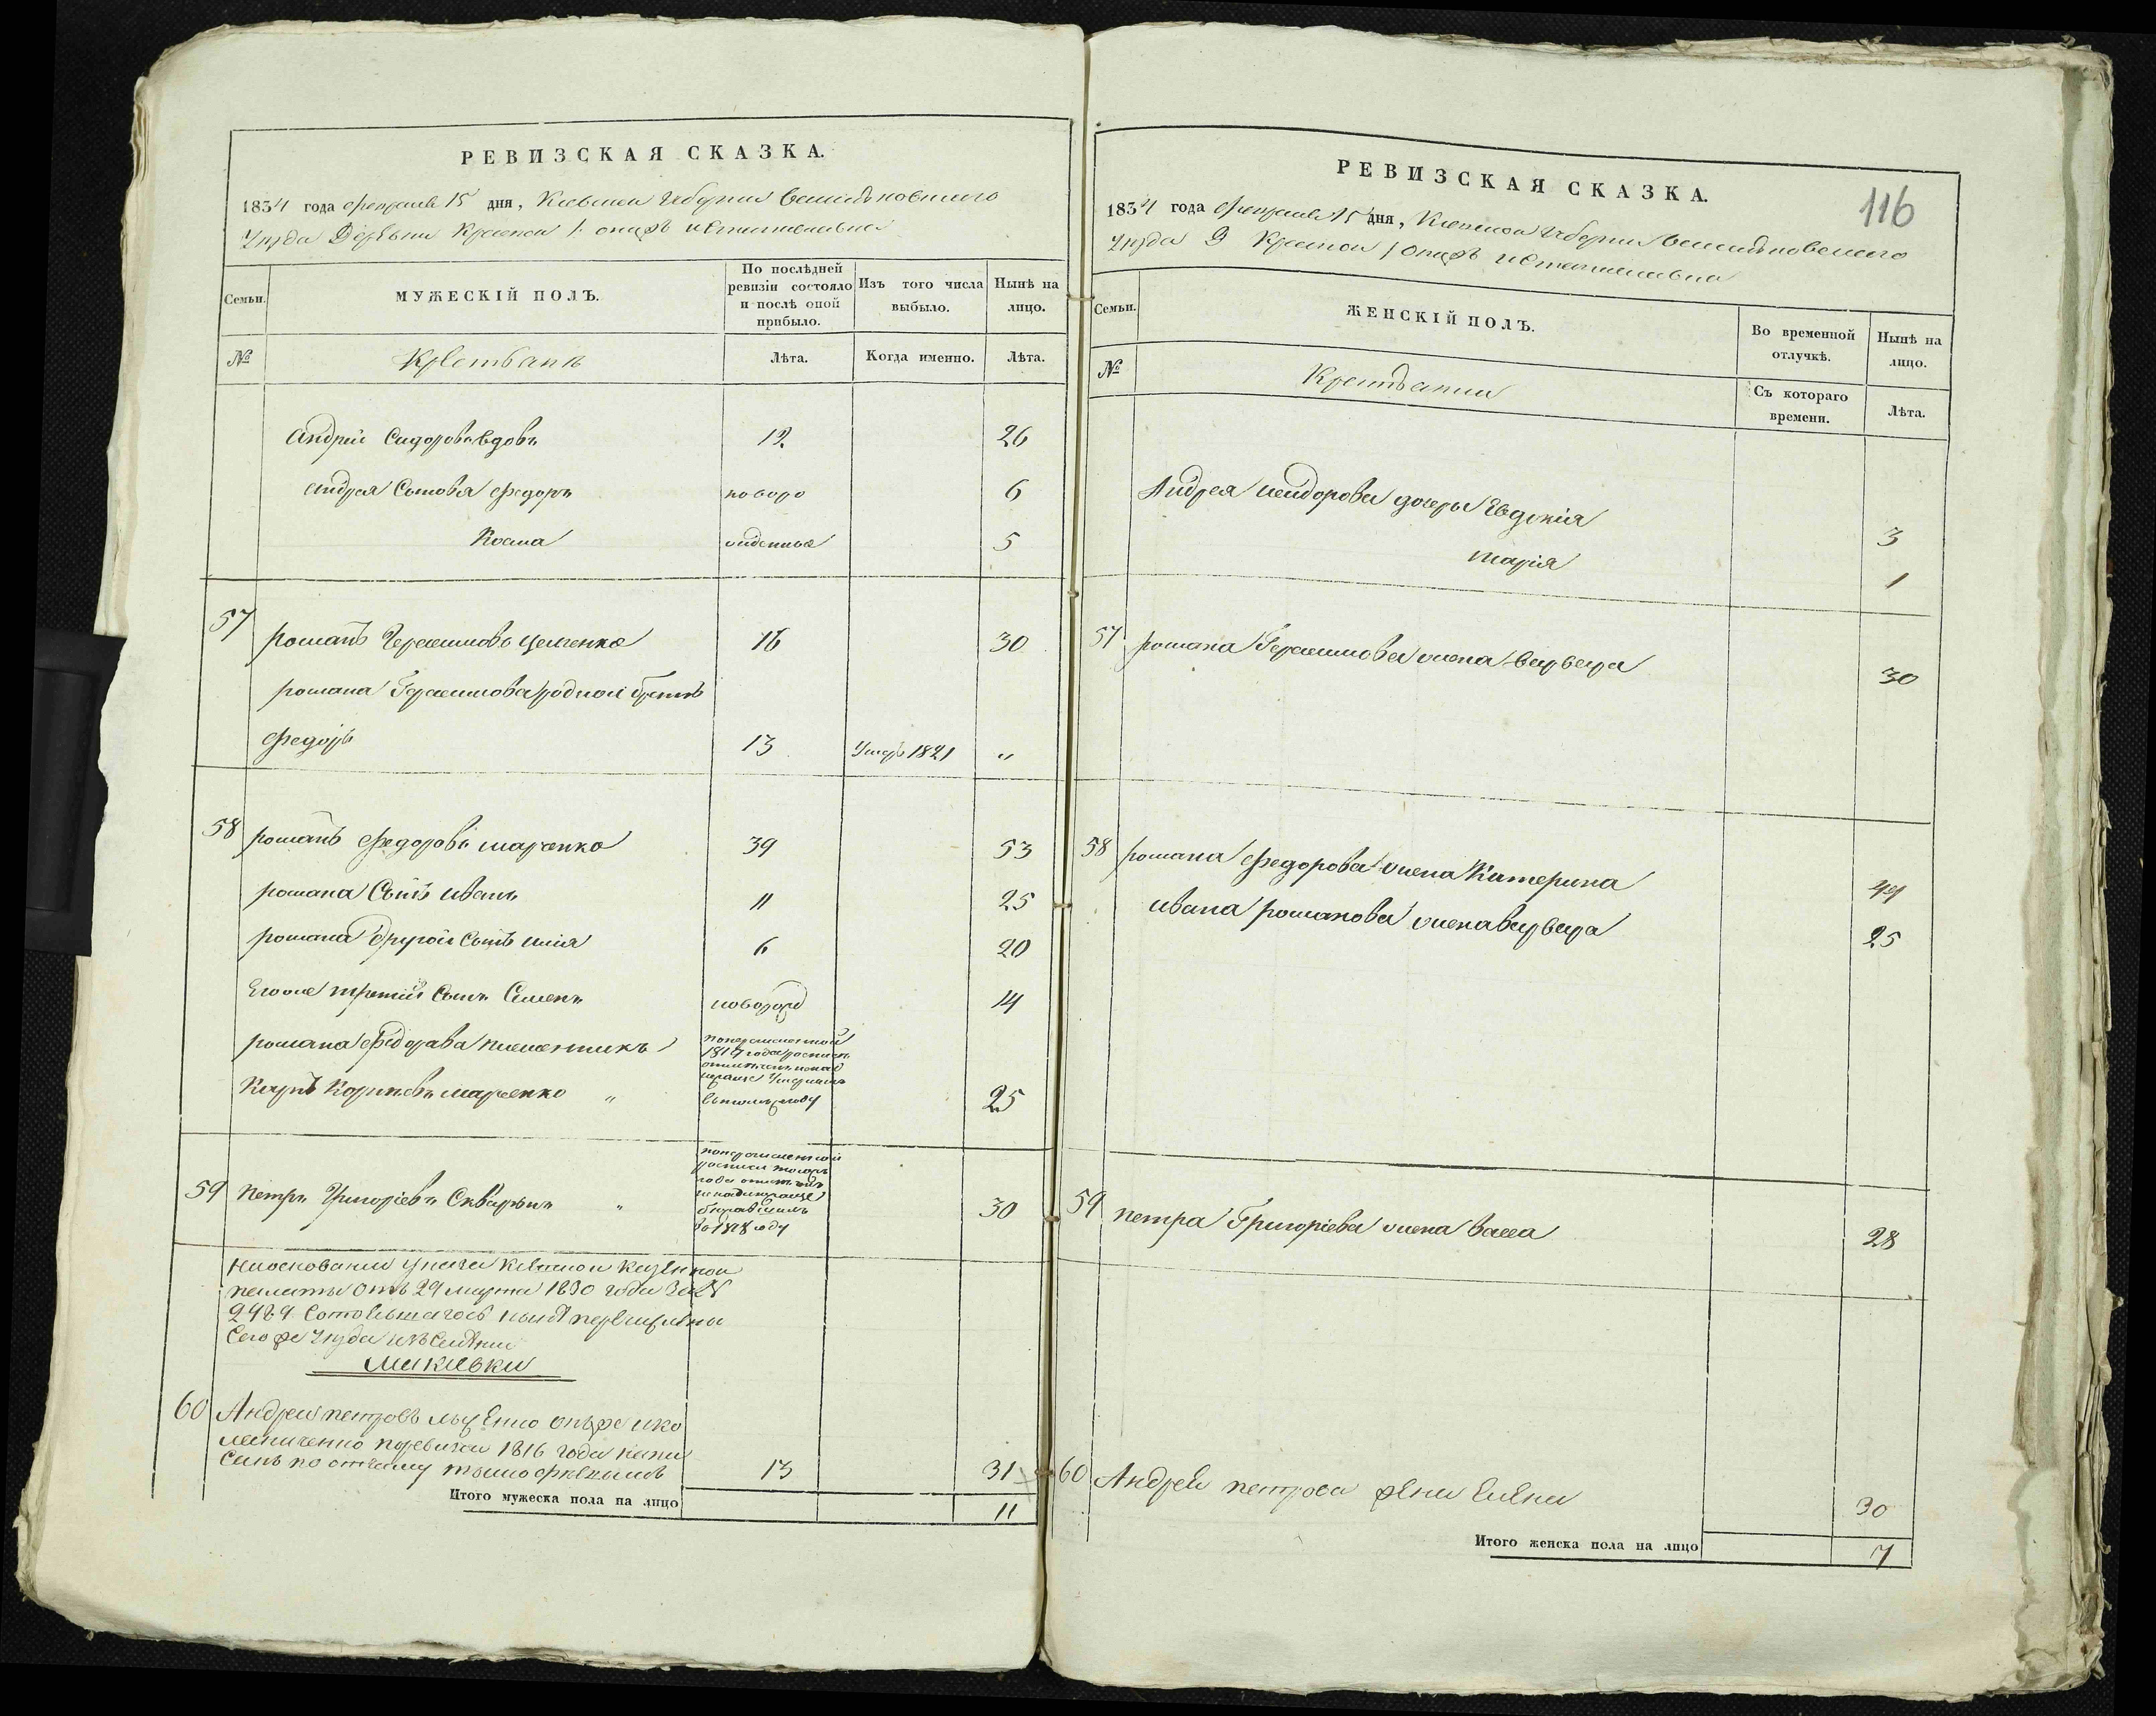 РЕВИЗСКАЯ СКАЗКА.
1834 года февраля 15 дня, Киевской губернии
уезда Деревни Красной
Семьи.
МУЖЕСКІЙ ПОЛЪ.
По послѣдней ревизіи состояло и послѣ оной прибыло.
Изъ того числа выбыло.
Нынѣ на лицо.
№
Крестьянъ
Лѣта.
Когда именно.
Лѣта.
Андрей Сидоровъ вдовъ 12 26
Андрея Сыновья Федоръ новоро 6
Косма жденные 5
57 романъ Герасимовъ 16 30
романа Герасимова родной братъ
Федоръ 13 Умеръ 1821 „
58 романъ Федоровъ марченко 39 53
романа Сынъ иванъ 11 25
романа другой Сынъ илія 6 20
Егоже третій Сынъ Семенъ новорожд 14
романа Федорава племенникъ
Карпъ марченко „ 25
59 петръ Григоріевъ „ 30
1818 году
На основаніи указа Киевской Казенной
палаты отъ 29 марта 1830 года за №
Сего же уезда изъ селенія
Макиевки
60 Андрей петровъ онъ же и ко
ревизіи 1816 года напи
санъ по отчиму 13 31
Итого мужеска пола на лицо 11
РЕВИЗСКАЯ СКАЗКА.
116
1834 года февраля 15 дня, Киевской губернии
уезда Д Красной
Семьи.
ЖЕНСКІЙ ПОЛЪ.
Во временной отлучкѣ.
Нынѣ на лицо.
№
Крестьянки
Съ котораго времени.
Лѣта.
Андрея сидорова дочери Евдокія 3
марія 1
57 романа Герасимова жена варвара 30
58 романа Федорова жена Катерина 44
ивана романова жена варвара 25
59 петра Григоріева жена васса 28
60 Андрея петрова жена Елена 30
Итого женска пола на лицо 7